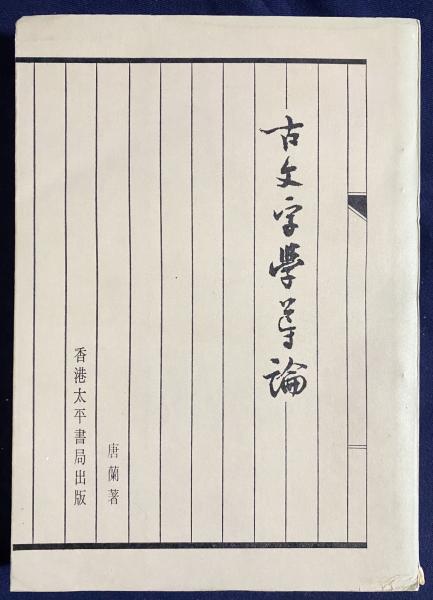 古文字學導論
唐蘭著
香港太平書局出版